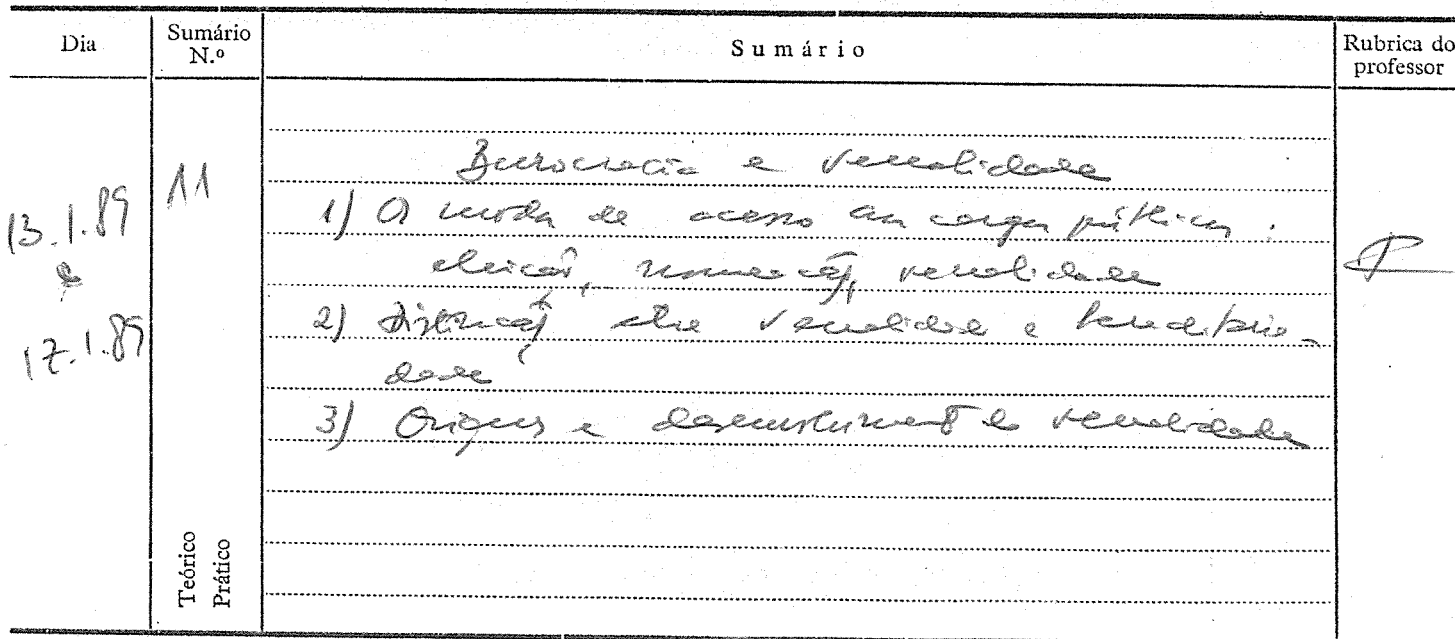 Dia
Sumário N.º
Sumário
Rubrica do professor
13.1.89
e
17.1.89
11
Burocracia e venalidade
1) Os modos de acesso aos cargos públicos:
eleição, nomeação, venalidade
2) Distinção entre venalidade e
dade
3) Origens e desenvolvimento da venalidade
Teórico
Prático